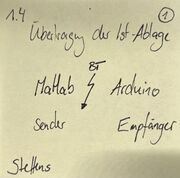 1.4 ①
Übertragung der Ist-Ablage
BT
Matlab Arduino
Sender Empfänger
Steffens